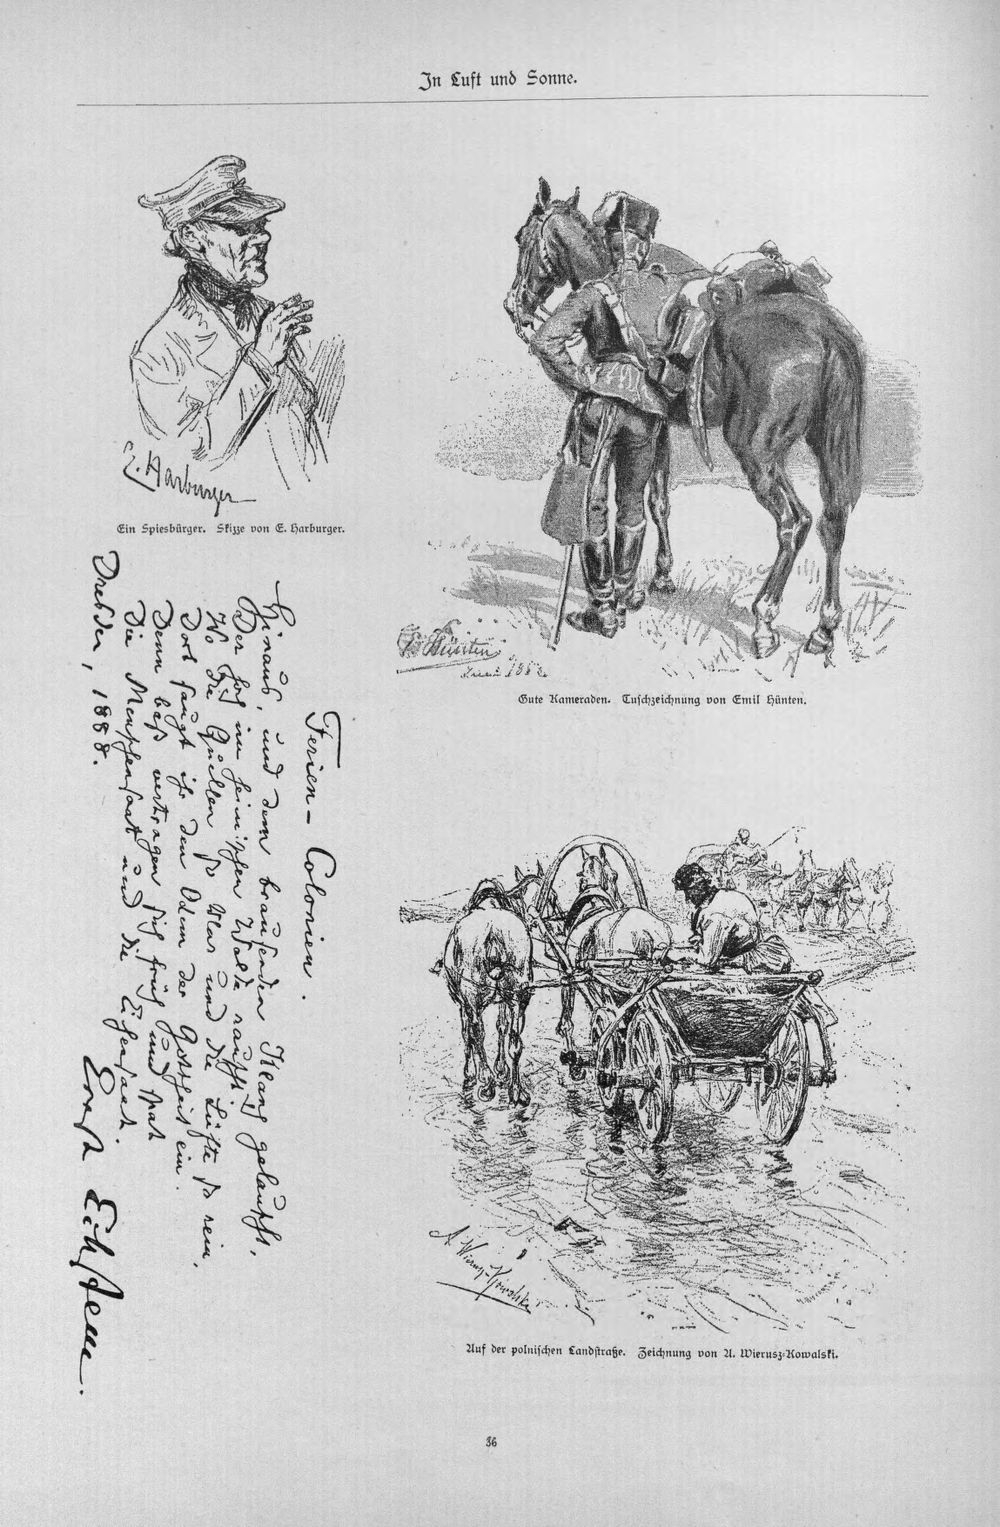 In Luft und Sonne.
E. Harburger
Ein Spiesbürger. Skizze von E. Harburger.
E. Hünten
Juni 1882
Gute Kameraden. Tuschzeichnung von Emil Hünten.
Ferien-Colonien.
Hinaus, und dem brausenden Klang gelauscht,
Der hoch im heimischen Walde rauscht!
Wo die Quellen so klar und die Lüfte so rein,
Dort saugt ihr den Odem der Gottheit ein.
Denn baß vertragen sich früh und spat
Die Menschensaat und die Eichensaat.
Dresden, 1888.
Ernst Eckstein.
A. Wierusz-Kowalski
Auf der polnischen Landstraße. Zeichnung von A. Wierusz-Kowalski.
36